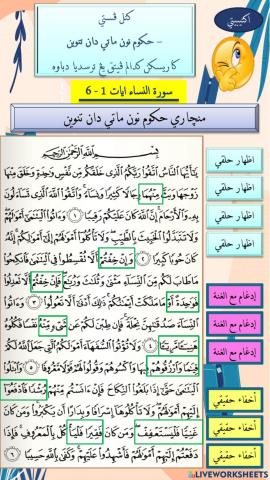 اکتيۏيتي
کنل ڤستي
– حکوم نون ماتي دان تنوين
ݢاريسکن کدالم ڤيتق يڠ ترسديا دباوه
سورة النساء ايات 1 - 6
منچاري حکوم نون ماتي دان تنوين
بِسْمِ اللَّهِ الرَّحْمَٰنِ الرَّحِيمِ
يَٰٓأَيُّهَا النَّاسُ اتَّقُوا رَبَّكُمُ الَّذِي خَلَقَكُم مِّن نَّفْسٍ وَٰحِدَةٍ وَخَلَقَ مِنْهَا
زَوْجَهَا وَبَثَّ مِنْهُمَا رِجَالًا كَثِيرًا وَنِسَآءً وَاتَّقُوا اللَّهَ الَّذِي تَسَآءَلُونَ
بِهِ وَالْأَرْحَامَ إِنَّ اللَّهَ كَانَ عَلَيْكُمْ رَقِيبًا ١ وَءَاتُوا الْيَتَٰمَىٰٓ أَمْوَٰلَهُمْ
وَلَا تَتَبَدَّلُوا الْخَبِيثَ بِالطَّيِّبِ وَلَا تَأْكُلُوٓا أَمْوَٰلَهُمْ إِلَىٰٓ أَمْوَٰلِكُمْ إِنَّهُ
كَانَ حُوبًا كَبِيرًا ٢ وَإِنْ خِفْتُمْ أَلَّا تُقْسِطُوا فِي الْيَتَٰمَىٰ فَانكِحُوا
مَا طَابَ لَكُم مِّنَ النِّسَآءِ مَثْنَىٰ وَثُلَٰثَ وَرُبَٰعَ فَإِنْ خِفْتُمْ أَلَّا تَعْدِلُوا
فَوَٰحِدَةً أَوْ مَا مَلَكَتْ أَيْمَٰنُكُمْ ذَٰلِكَ أَدْنَىٰٓ أَلَّا تَعُولُوا ٣ وَءَاتُوا
النِّسَآءَ صَدُقَٰتِهِنَّ نِحْلَةً فَإِن طِبْنَ لَكُمْ عَن شَيْءٍ مِّنْهُ نَفْسًا فَكُلُوهُ
هَنِيٓئًا مَّرِيٓئًا ٤ وَلَا تُؤْتُوا السُّفَهَآءَ أَمْوَٰلَكُمُ الَّتِي جَعَلَ اللَّهُ لَكُمْ
قِيَٰمًا وَارْزُقُوهُمْ فِيهَا وَاكْسُوهُمْ وَقُولُوا لَهُمْ قَوْلًا مَّعْرُوفًا ٥ وَابْتَلُوا
الْيَتَٰمَىٰ حَتَّىٰٓ إِذَا بَلَغُوا النِّكَاحَ فَإِنْ ءَانَسْتُم مِّنْهُمْ رُشْدًا فَادْفَعُوٓا
إِلَيْهِمْ أَمْوَٰلَهُمْ وَلَا تَأْكُلُوهَآ إِسْرَافًا وَبِدَارًا أَن يَكْبَرُوا وَمَن كَانَ
غَنِيًّا فَلْيَسْتَعْفِفْ وَمَن كَانَ فَقِيرًا فَلْيَأْكُلْ بِالْمَعْرُوفِ فَإِذَا
دَفَعْتُمْ إِلَيْهِمْ أَمْوَٰلَهُمْ فَأَشْهِدُوا عَلَيْهِمْ وَكَفَىٰ بِاللَّهِ حَسِيبًا ٦
اظهار حلقي
اظهار حلقي
اظهار حلقي
اظهار حلقي
إدغام مع الغنة
إدغام مع الغنة
إدغام مع الغنة
أخفاء حقيقي
أخفاء حقيقي
أخفاء حقيقي
LIVEWORKSHEETS